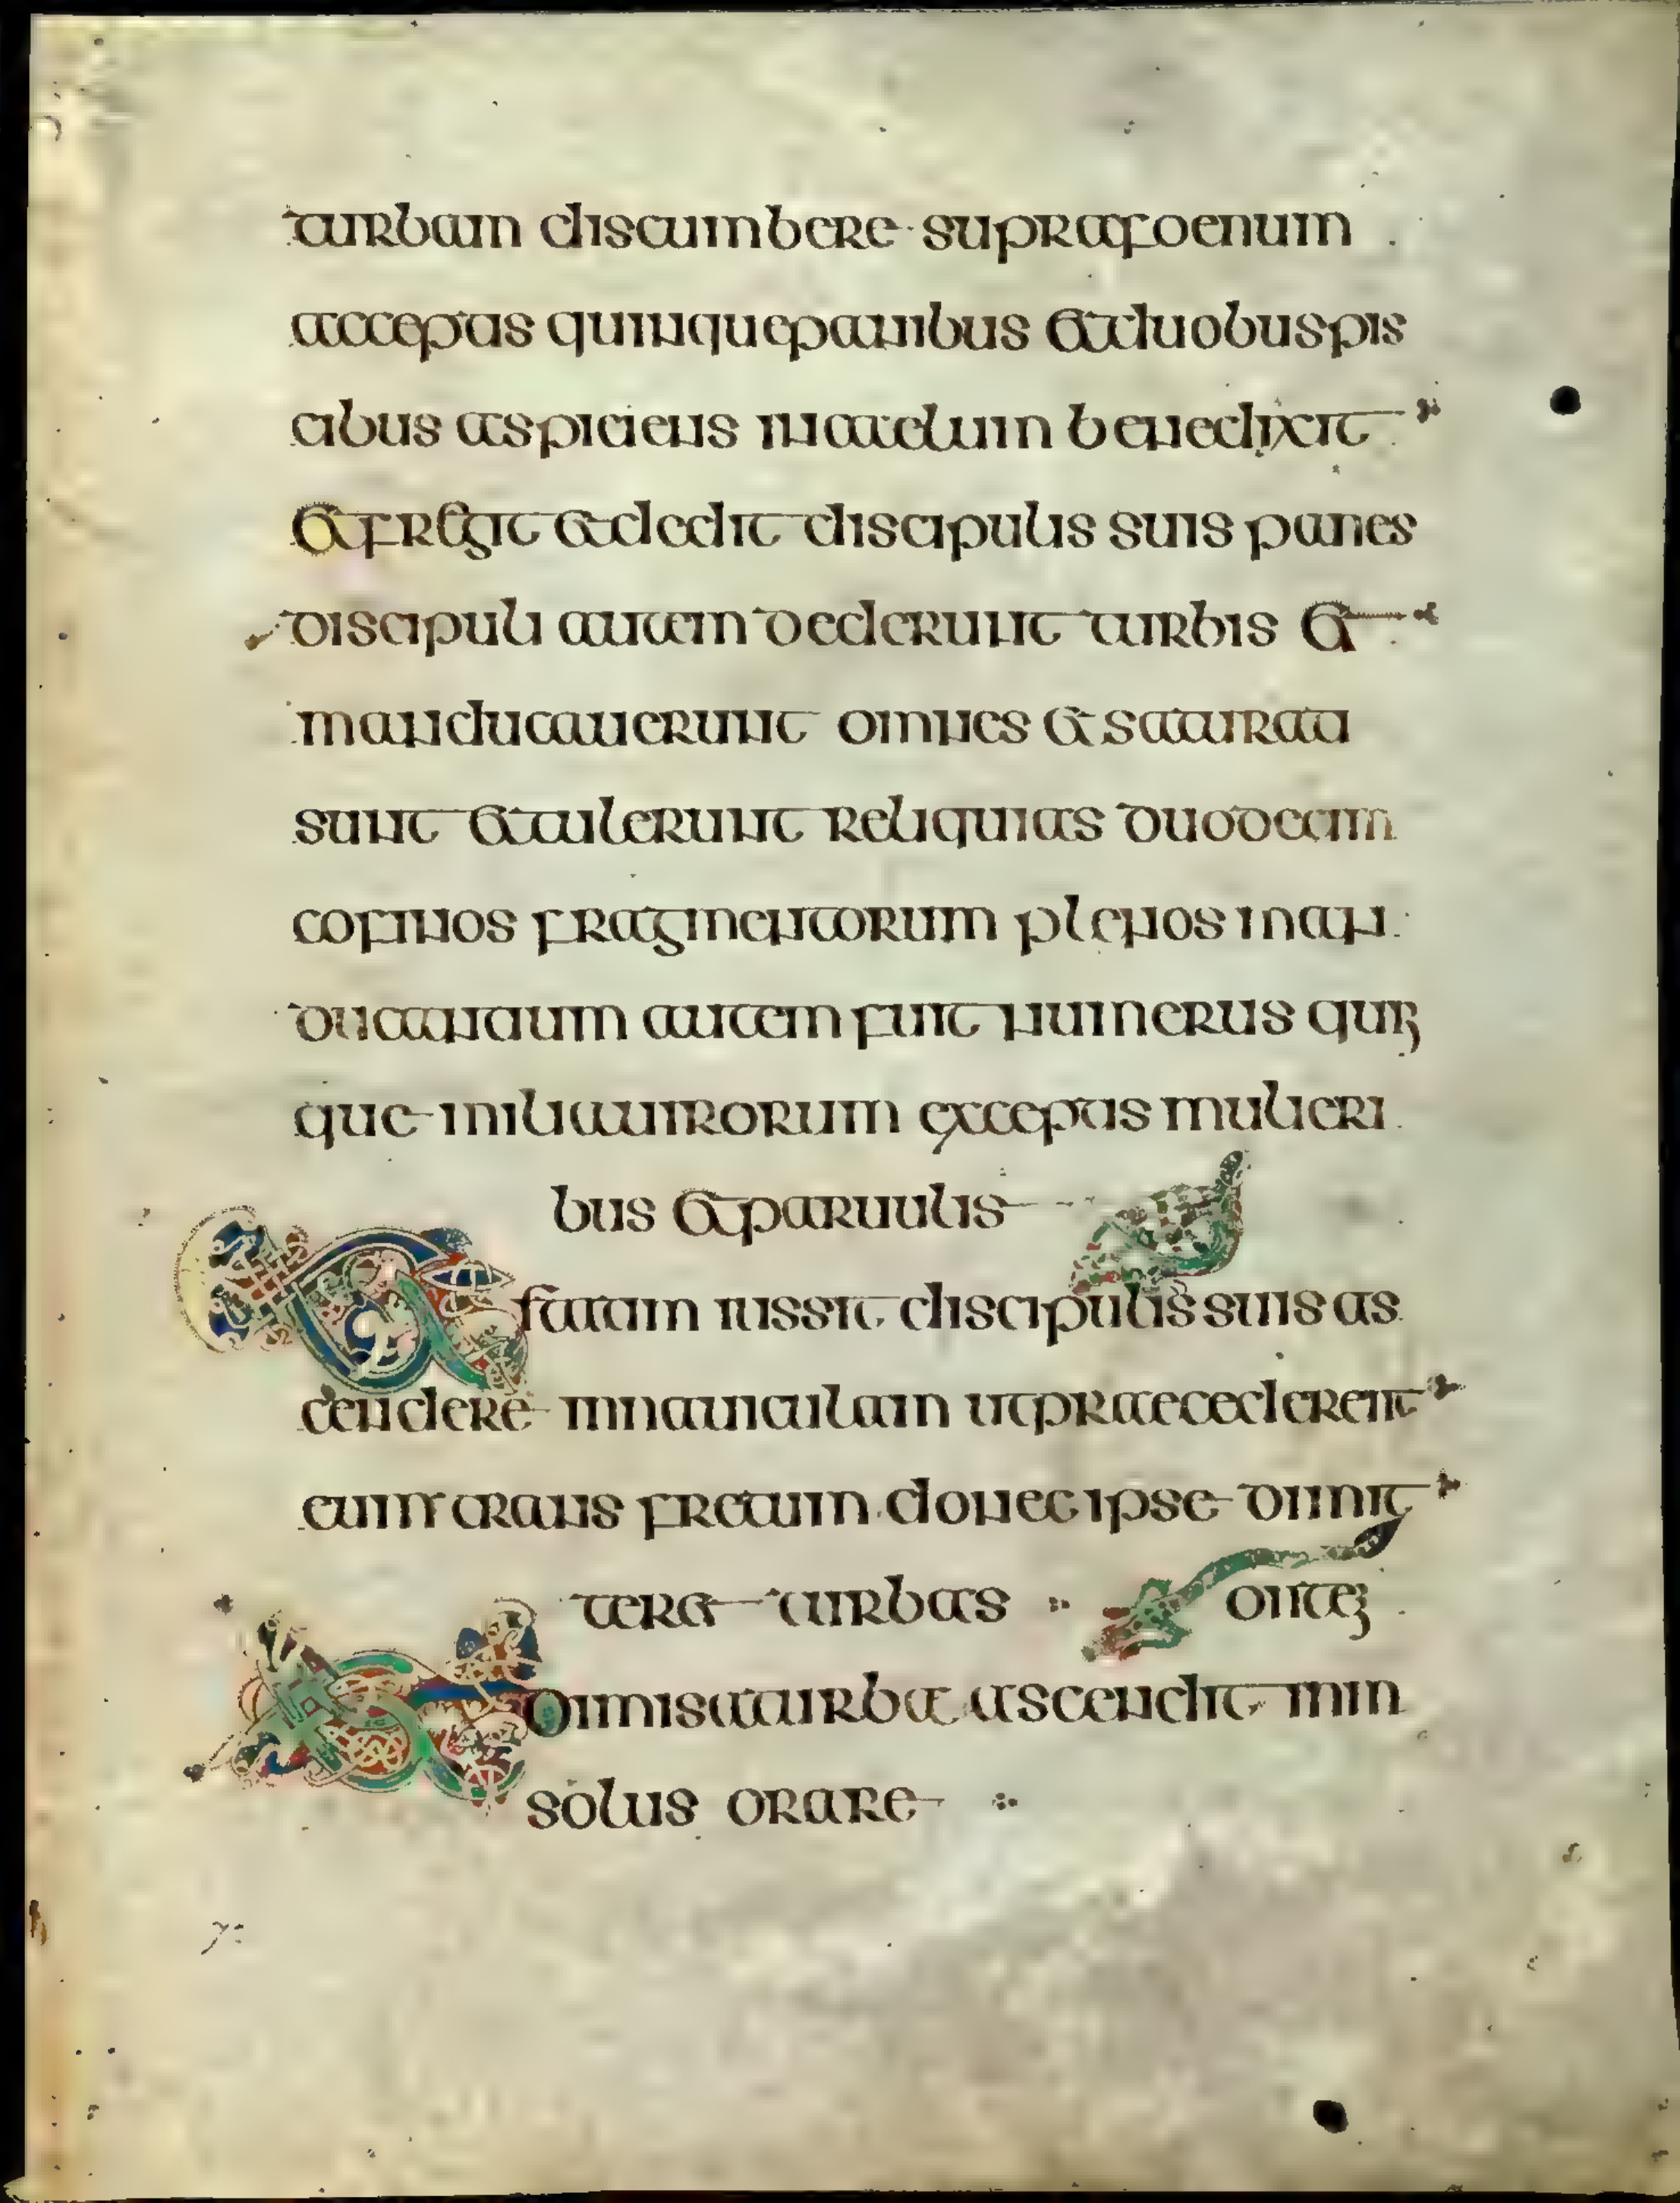 turbam discumbere supra foenum
acceptis quinque panibus et duobus pis
cibus aspiciens in caelum benedixit
et fregit et dedit discipulis suis panes
discipuli autem dederunt turbis et
manducauerunt omnes et saturati
sunt et tulerunt reliquias duodecim
cofinos fragmentorum plenos man
ducantium autem fuit numerus quin
que milia uirorum exceptis mulieri
bus et paruulis
Et statim iussit discipulis suis as
cendere in nauiculam ut praecederent
eum trans fretum donec ipse dimit
teret turbas
montem
Et dimisa turba ascendit in
solus orare